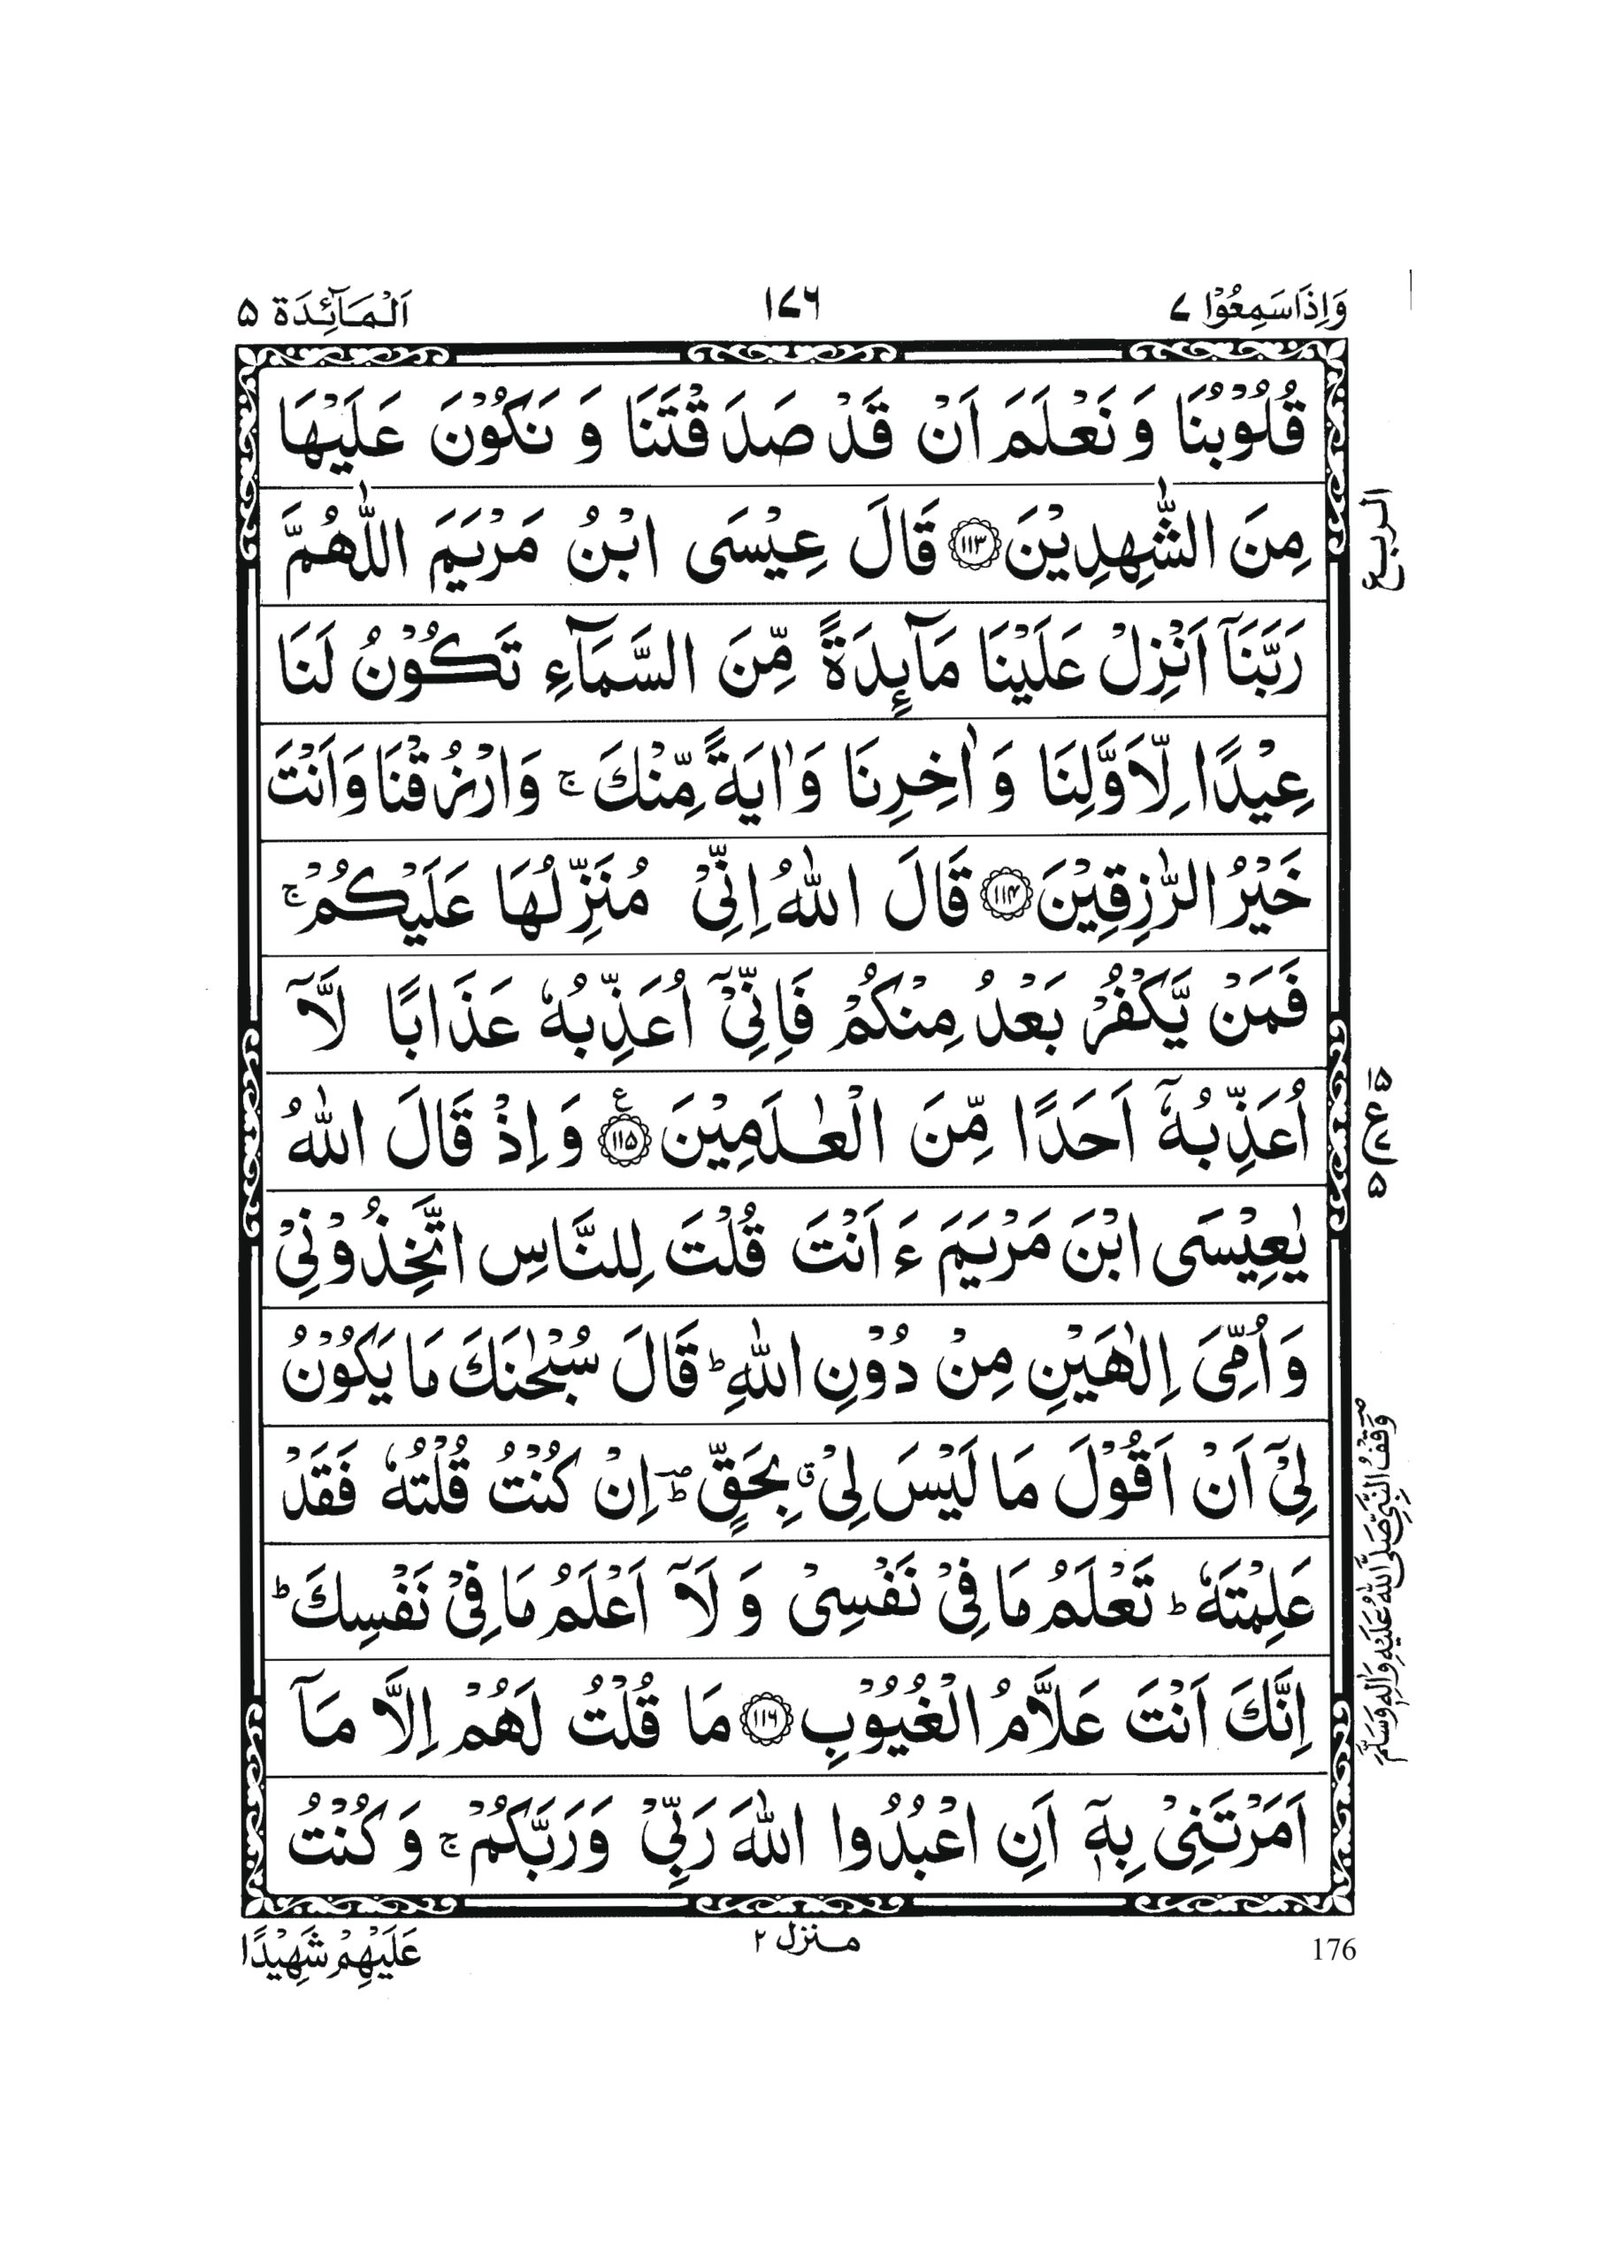 وَاِذَاسَمِعُوْا ۷
۱۷۶
اَلْمَآئِدَة ۵
قُلُوْبُنَا وَ نَعْلَمَ اَنْ قَدْ صَدَقْتَنَا وَ نَكُوْنَ عَلَيْهَا
مِنَ الشّٰهِدِيْنَ ۝۱۱۳ قَالَ عِيْسَى ابْنُ مَرْيَمَ اللّٰهُمَّ
رَبَّنَاۤ اَنْزِلْ عَلَيْنَا مَآىِٕدَةً مِّنَ السَّمَآءِ تَكُوْنُ لَنَا
عِيْدًا لِّاَوَّلِنَا وَ اٰخِرِنَا وَ اٰيَةً مِّنْكَ ۚ وَ ارْزُقْنَا وَ اَنْتَ
خَيْرُ الرّٰزِقِيْنَ ۝۱۱۴ قَالَ اللّٰهُ اِنِّيْ مُنَزِّلُهَا عَلَيْكُمْ ۚ
فَمَنْ يَّكْفُرْ بَعْدُ مِنْكُمْ فَاِنِّيْۤ اُعَذِّبُهٗ عَذَابًا لَّاۤ
اُعَذِّبُهٗۤ اَحَدًا مِّنَ الْعٰلَمِيْنَ ۝۱۱۵ ع وَ اِذْ قَالَ اللّٰهُ
يٰعِيْسَى ابْنَ مَرْيَمَ ءَ اَنْتَ قُلْتَ لِلنَّاسِ اتَّخِذُوْنِيْ
وَ اُمِّيَ اِلٰهَيْنِ مِنْ دُوْنِ اللّٰهِ ؕ قَالَ سُبْحٰنَكَ مَا يَكُوْنُ
لِيْۤ اَنْ اَقُوْلَ مَا لَيْسَ لِيْ ۗ بِحَقٍّ ؕ ۖ اِنْ كُنْتُ قُلْتُهٗ فَقَدْ
عَلِمْتَهٗ ؕ تَعْلَمُ مَا فِيْ نَفْسِيْ وَ لَاۤ اَعْلَمُ مَا فِيْ نَفْسِكَ ؕ
اِنَّكَ اَنْتَ عَلَّامُ الْغُيُوْبِ ۝۱۱۶ مَا قُلْتُ لَهُمْ اِلَّا مَاۤ
اَمَرْتَنِيْ بِهٖۤ اَنِ اعْبُدُوا اللّٰهَ رَبِّيْ وَ رَبَّكُمْ ۚ وَ كُنْتُ
الربع
۱۵
ع
۵
وَقْفُ النَّبِيِّ صَلَّى اللّٰهُ عَلَيْهِ وَاٰلِهٖ وَسَلَّمَ
عَلَيْهِمْ شَهِيْدًا
منزل ۲
176